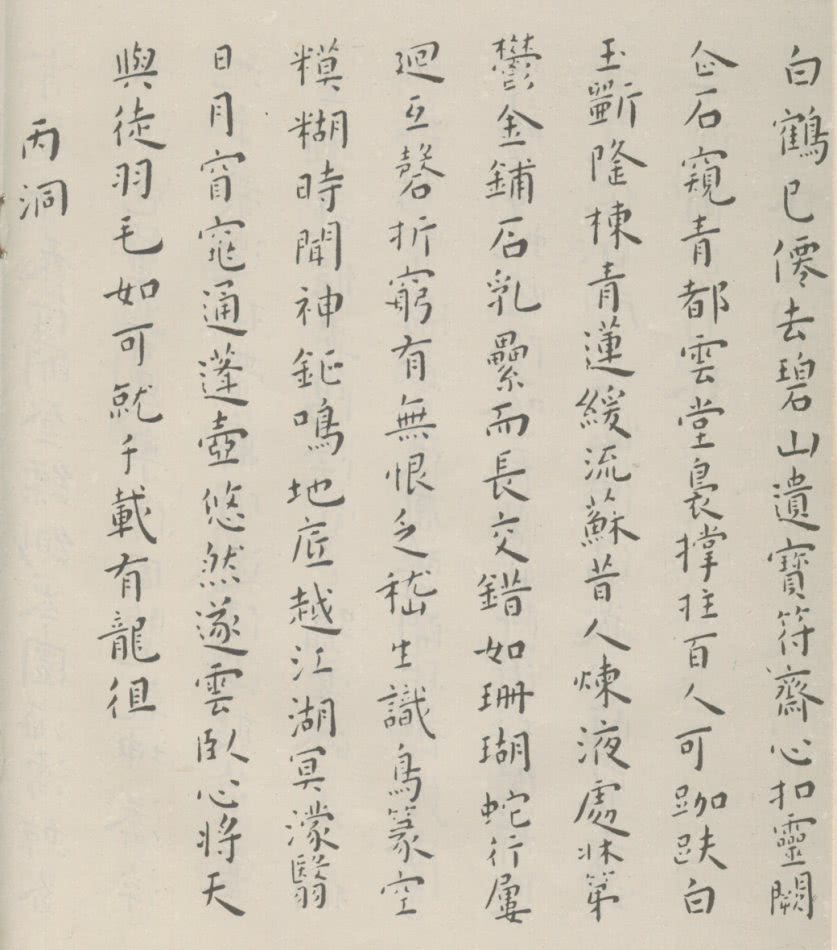 白鶴已僊去碧山遺寶符齋心扣靈闕
企石窺青都雲堂裊撐拄百人可跏趺白
玉斲隆棟青蓮緩流蘇昔人煉液處牀第
鬱金鋪石乳纍而長交錯如珊瑚蛇行屢
迴互磬折窮有無恨乏嵇生識鳥篆空
糢糊時聞神鉦鳴地底越江湖冥濛翳
日月窅窕通蓬壺悠然遂雲臥心將天
與徒羽毛如可就千載有龍徂
丙洞